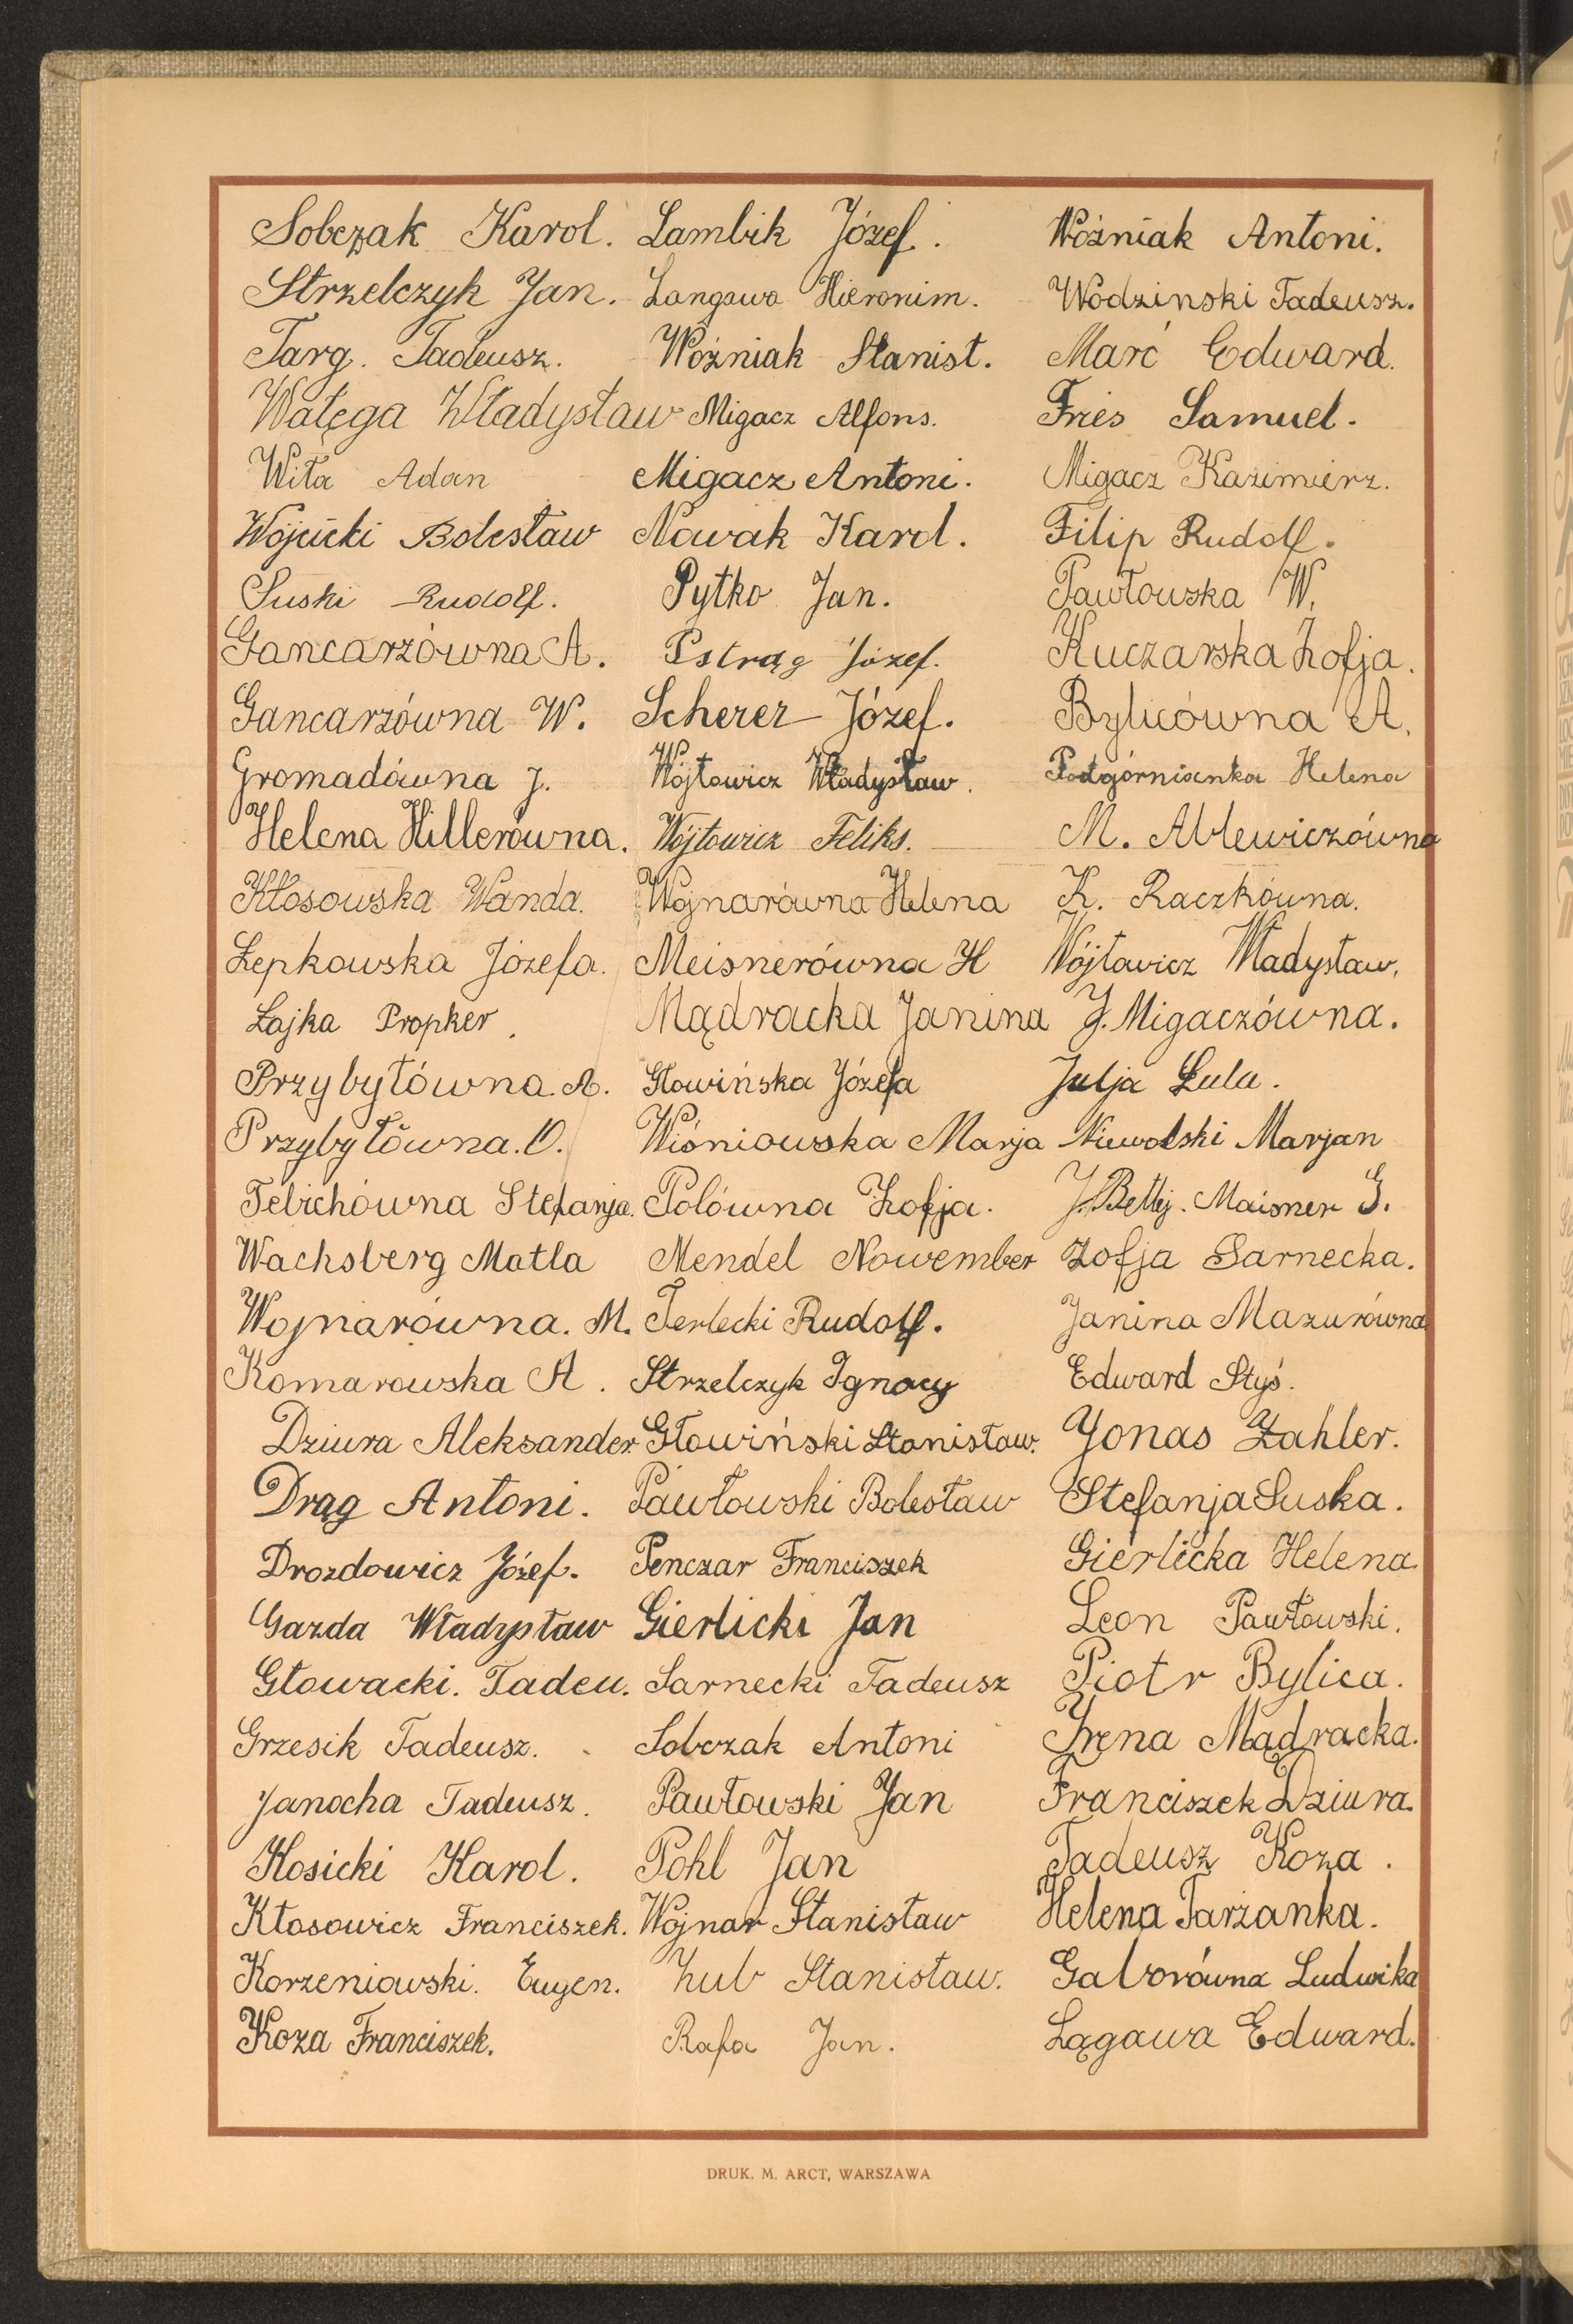 Sobczak Karol. Lambik Józef. Woźniak Antoni.
Strzelczyk Jan. Langawa Hieronim. Wodzinski Tadeusz.
Targ. Tadeusz. Woźniak Stanist. Marć Edward.
Watęga Władysław Migacz Alfons. Fries Samuel.
Wita Adam Migacz Antoni. Migacz Kazimierz.
Wójcicki Bolesław Nowak Karol. Filip Rudolf.
Suski Rudolf. Pytko Jan. Pawłowska W.
Gancarzówna A. Pstrąg Józef. Kuczarska Zofja.
Gancarzówna W. Scherer Józef. Bylicówna A.
Gromadówna J. Wójtowicz Władysław. Podgórnianka Helena
Helena Hillerówna. Wójtowicz Feliks. M. Ablewiczówna
Kłosowska Wanda. Wojnarówna Helena K. Raczkówna.
Łepkowska Józefa. Meisnerówna H Wójtowicz Władysław.
Łajka Propker. Mądracka Janina J. Migaczówna.
Przybyłówna. A. Głowińska Józefa Julja Lula.
Przybyłówna. O. Wiśniowska Marja Niewolski Marjan
Telichówna Stefanja. Polówna Zofja. J. Betlej. Maisner G.
Wachsberg Matla Mendel Nowember Zofja Sarnecka.
Wojnarówna. M. Terlecki Rudolf. Janina Mazurówna
Komarowska A. Strzelczyk Ignacy Edward Styś.
Dziura Aleksander Głowiński Stanisław. Jonas Zahler.
Drąg Antoni. Pawłowski Bolesław Stefanja Suska.
Drozdowicz Józef. Penczar Franciszek Gierlicka Helena.
Gazda Władysław Gierlicki Jan Leon Pawłowski.
Głowacki. Tadeu. Sarnecki Tadeusz Piotr Bylica.
Grzesik Tadeusz. Sobczak Antoni Irena Mądracka.
Janocha Tadeusz. Pawłowski Jan Franciszek Dziura.
Kosicki Karol. Pohl Jan Tadeusz Koza.
Kłosowicz Franciszek. Wojnar Stanisław Helena Tarżanka.
Korzeniowski. Eugen. Zub Stanisław. Galorówna Ludwika
Koza Franciszek. Rafa Jan. Łągawa Edward.
DRUK. M. ARCT, WARSZAWA